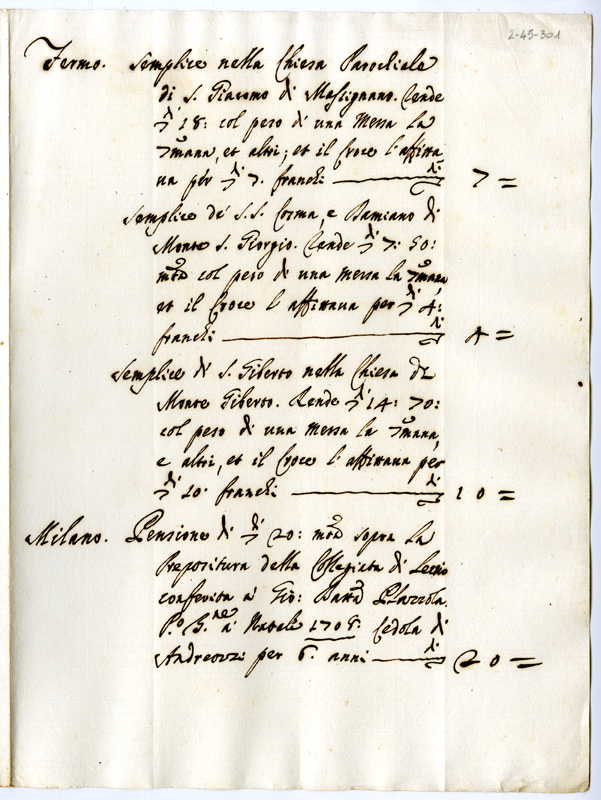 2-45-301
Fermo. Semplice nella Chiesa Parochiale
di S. Giacomo di Massignano. Rende
di 18: col peso di una Messa la
7mana, et altri; et il Croce l'affitta
ua per di 7. franchi — di 7 =
Semplice de' S.S. Cosma, e Damiano di
Monte S. Giorgio. Rende di 7: 50:
mta col peso di una Messa la 7mana,
et il Croce l'affittaua per di 4:
franchi — di 4 =
Semplice di S. Giberto nella Chiesa di
Monte Giberto. Rende di 14: 70:
col peso di una Messa la 7mana,
e altri, et il Croce l'affittaua per
di 10. franchi — di 10 =
Milano. Pensione di di 20: mta sopra la
Prepositura della Collegiata di
conferita a' Gio: Batta
P.o G.ne a' Natale 1708. Cedola di
Andreozzi per 6. anni — di 20 =